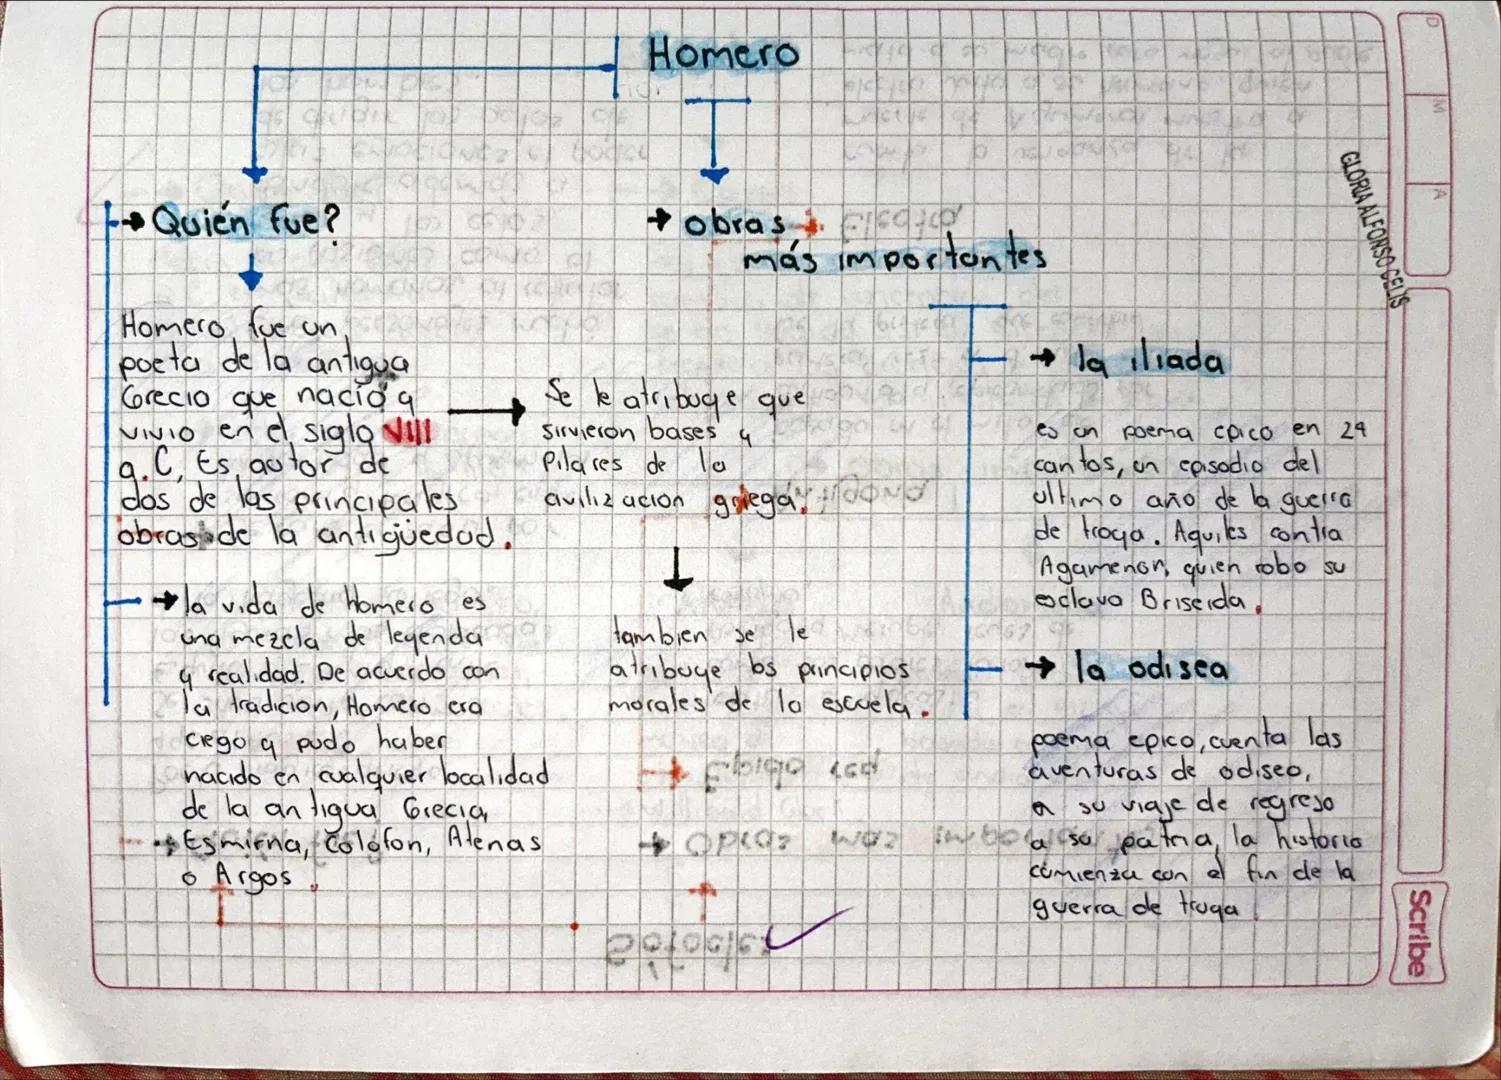 Homero
Quién fue?
Homero fue un
poeta de la antigua
Grecia que nació y
vivio en el siglo VIII
a.C, Es autor de
dos de las principales
obras de la antigüedad.
la vida de Homero es
una mezcla de leyenda
y realidad. De acuerdo con
la tradicion, Homero era
ciego y pudo haber
nacido en cualquier localidad
de la antigua Grecia,
Esmirna, Colofon, Atenas
o Argos.
Se le atribuye que
sirvieron bases y
Pilares de la
civilizacion griega.
tambien se le
atribuye los principios
morales de la escuela.
obras
más importantes
la iliada
es un poema epico en 24
cantos, un episodio del
ultimo año de la guerra
de troya. Aquiles contra
Agamenon, quien robo su
esclava Briseida.
la odisea
poema epico, cuenta las
aventuras de odiseo,
a su viaje de regreso
a su patria, la historia
comienza con el fin de la
guerra de troya
GLORIA ALFONSO CELIS
D M A
Scribe